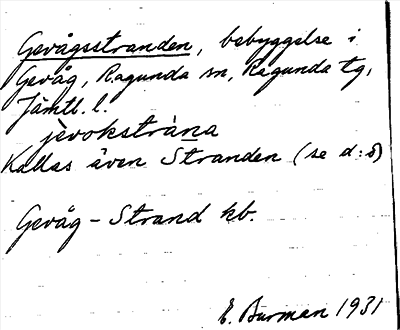 Gevågsstranden, bebyggelse i
Gevåg, Ragunda sn, Ragunda tg,
Jämtl. l.
jèvokstràna
Kallas även Stranden (se d:o)
Gevåg - Strand kb.
E. Burman 1931